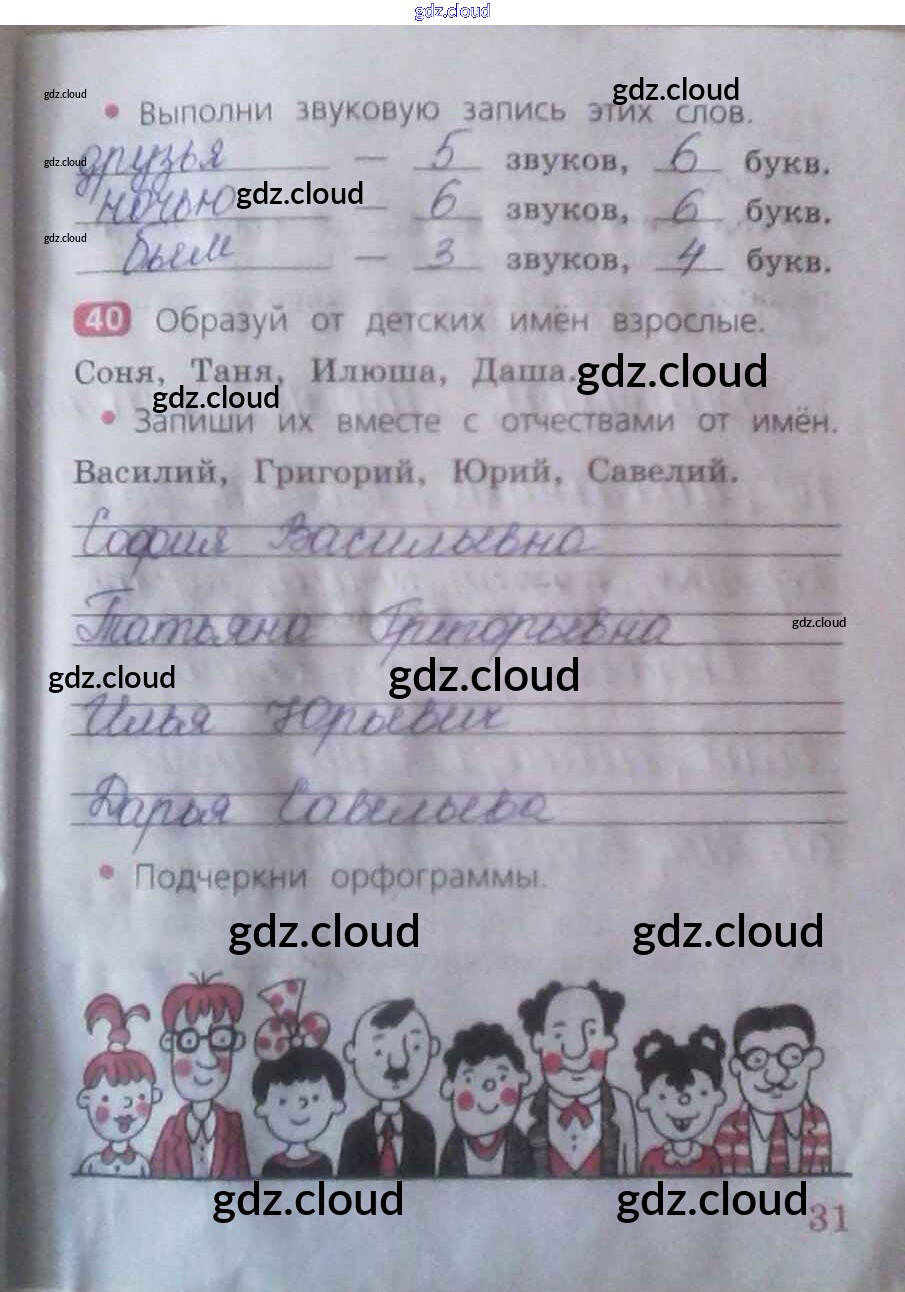 gdz.cloud
gdz.cloud
gdz.cloud
• Выполни звуковую запись этих слов.
друзья — 5 звуков, 6 букв.
gdz.cloud
ночью — 6 звуков, 6 букв.
gdz.cloud
gdz.cloud
бьем — 3 звуков, 4 букв.
40 Образуй от детских имён взрослые.
Соня, Таня, Илюша, Даша.
gdz.cloud
gdz.cloud
• Запиши их вместе с отчествами от имён.
Василий, Григорий, Юрий, Савелий.
София Васильевна
Татьяна Григорьевна
gdz.cloud
gdz.cloud
gdz.cloud
Илья Юрьевич
Дарья Савельева
• Подчеркни орфограммы.
gdz.cloud
gdz.cloud
gdz.cloud
gdz.cloud
31